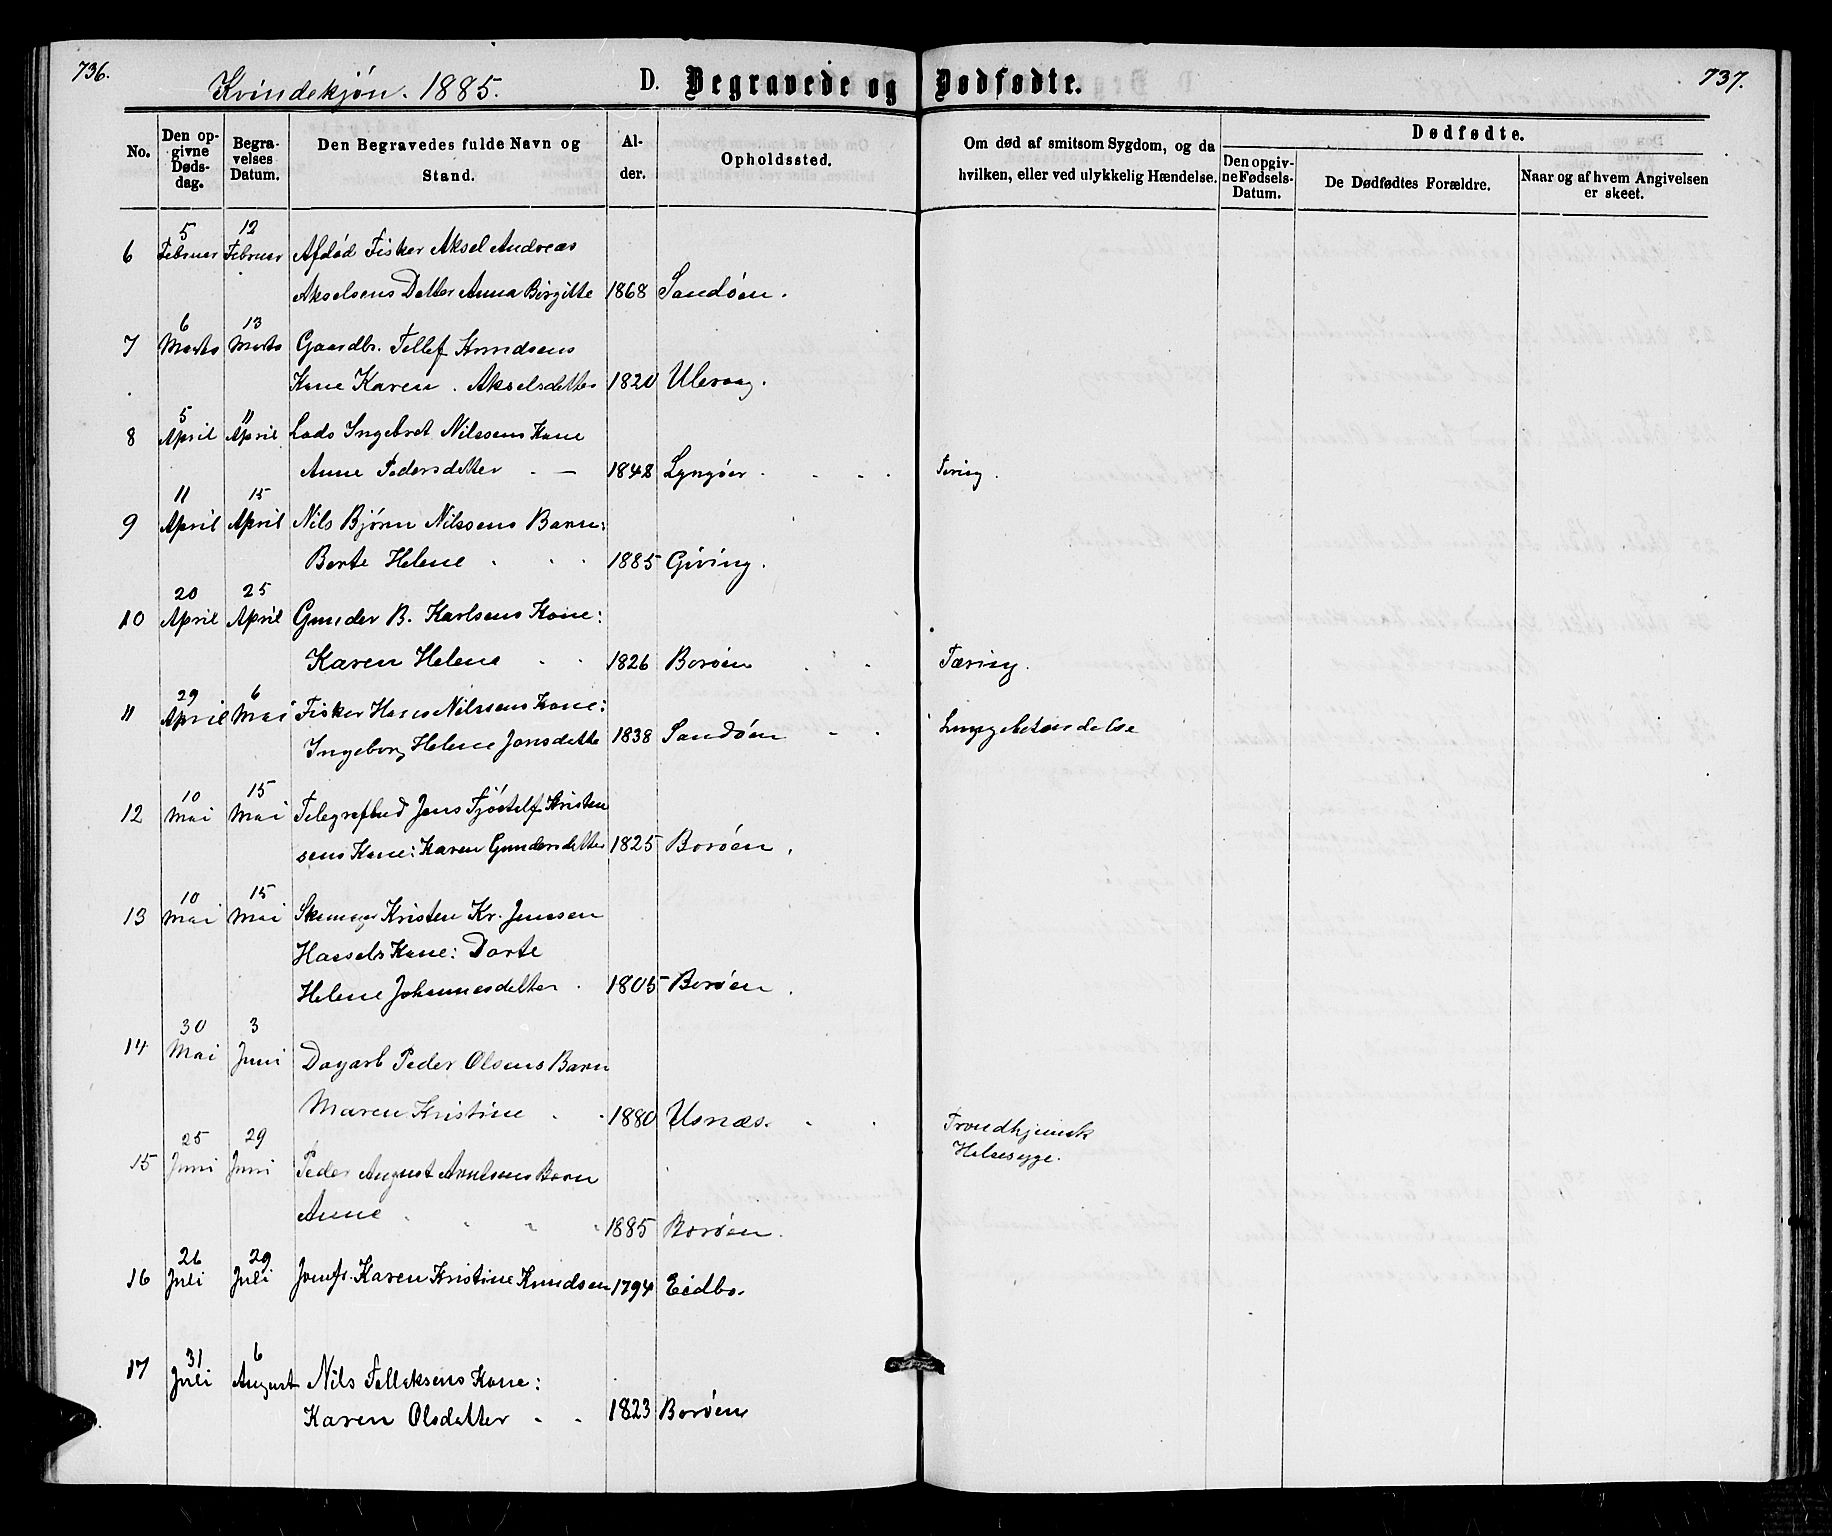 736.
Kvindekjøn. 1885. D. Begravede og Dødfødte. 737.
No.
Den op-
givne
Døds-
dag.
Begra-
velses
Datum.
Den Begravedes fulde Navn og
Stand.
Al-
der.
Opholdssted.
Om død af smitsom Sygdom, og da
hvilken, eller ved ulykkelig Hændelse.
Dødfødte.
Den opgiv-
ne Fødsels-
Datum.
De Dødfødtes Forældre.
Naar og af hvem Angivelsen
er skeet.
5 12
6 Februar Februar Afdød Fisker Aksel Andreas
Akselsens Datter Anna Birgitte 1868 Sandøen.
6 13
7 Marts Marts Gaardbr. Tellef Knudsens
Kone Karen Akselsdatter 1820 Ulevaag.
5 11
8 April April Lods Ingebret Nilssens Kone
Anne Pedersdatter - — 1848 Lyngøer . - - . Tering.
11 15
9 April April Nils Bjørn Nilssens Barn:
Berte Helene 1885 Giving.
20 25
10 April April Gunder B. Karlsens Kone:
Karen Helene 1826 Borøen Tæring.
29 6
11 April Mai Fisker Hans Nilssens Kone:
Ingeborg Helene Jonsdatte 1838 Sandøen - - Lungebetændelse
10 15
12 Mai Mai Telegrafbud Jens Tjøstelf Kristen
sens Kone: Karen Gundersdatter 1825 Borøen.
10 15
13 Mai Mai Kristen Kr. Jenssen
Hassels Kone: Dorte
Helene Johannesdatter . 1805 Borøen.
30 3
14 Mai Juni Dagarb Peder Olsens Barn
Maren Kristine 1880 Usnæs. Trondhjemsk
25 29
15 Juni Juni Peder August Arnlsens Barn Helsesyge.
Anne 1885 Borøen.
26 29
16 Juli Juli Jomfr. Karen Kristine Knudsen 1794 Eidbo.
31 6
17 Juli August Nils Felleksens Kone:
Karen Olsdatter - - 1823 Borøen